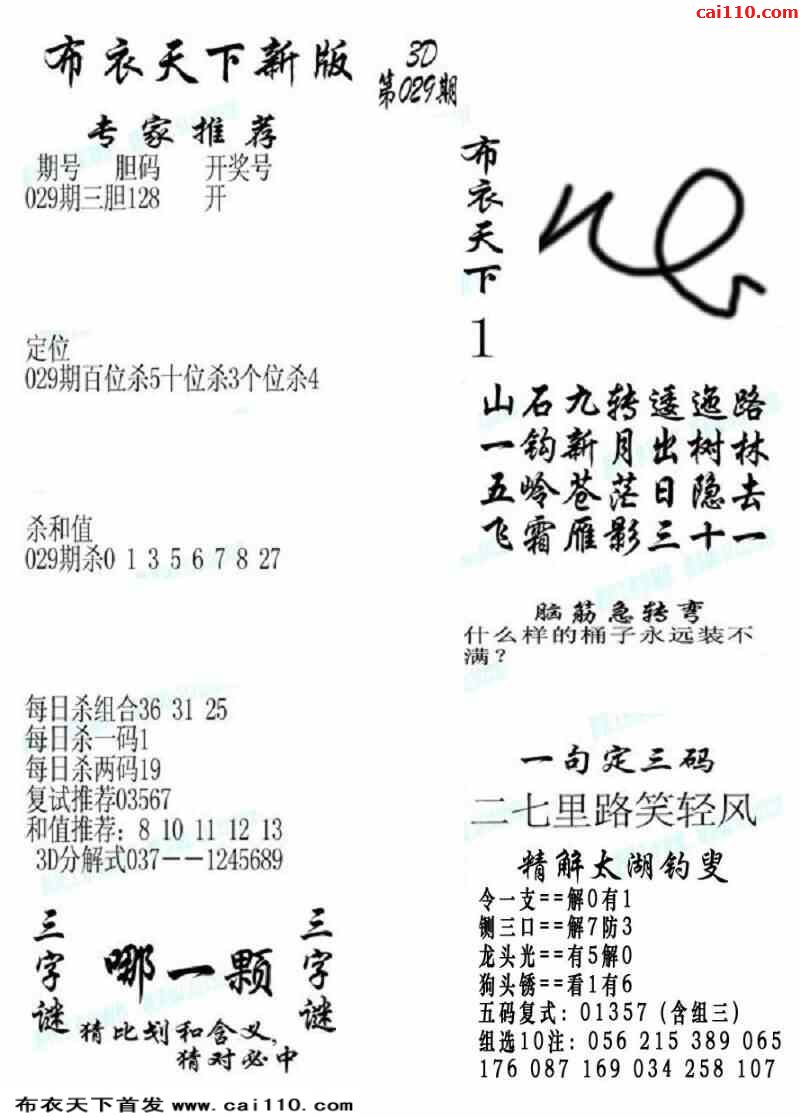 cai110.com
布衣天下新版
3D
第029期
专家推荐
期号 胆码 开奖号
029期三胆128 开
定位
029期百位杀5十位杀3个位杀4
杀和值
029期杀0 1 3 5 6 7 8 27
每日杀组合36 31 25
每日杀一码1
每日杀两码19
复试推荐03567
和值推荐：8 10 11 12 13
3D分解式037——1245689
三字谜
哪一颗
三字谜
猜比划和含义，
猜对必中
布衣天下
1
山石九转逶迤路
一钩新月出树林
五岭苍茫日隐去
飞霜雁影三十一
脑筋急转弯
什么样的桶子永远装不
满？
一句定三码
二七里路笑轻风
精解太湖钓叟
令一支==解0有1
铡三口==解7防3
龙头光==有5解0
狗头锈==看1有6
五码复式：01357（含组三）
组选10注：056 215 389 065
176 087 169 034 258 107
布衣天下首发 www.cai110.com